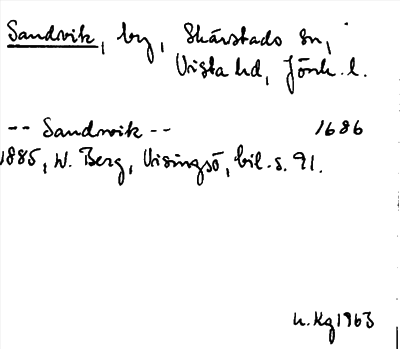 Sandvik, by, Skärstads sn,
Vista hd, Jönk. l.
-- Sandvik -- 1686
1885, W. Berg, Visingsö, bil. s. 91.
h. Kg 1963